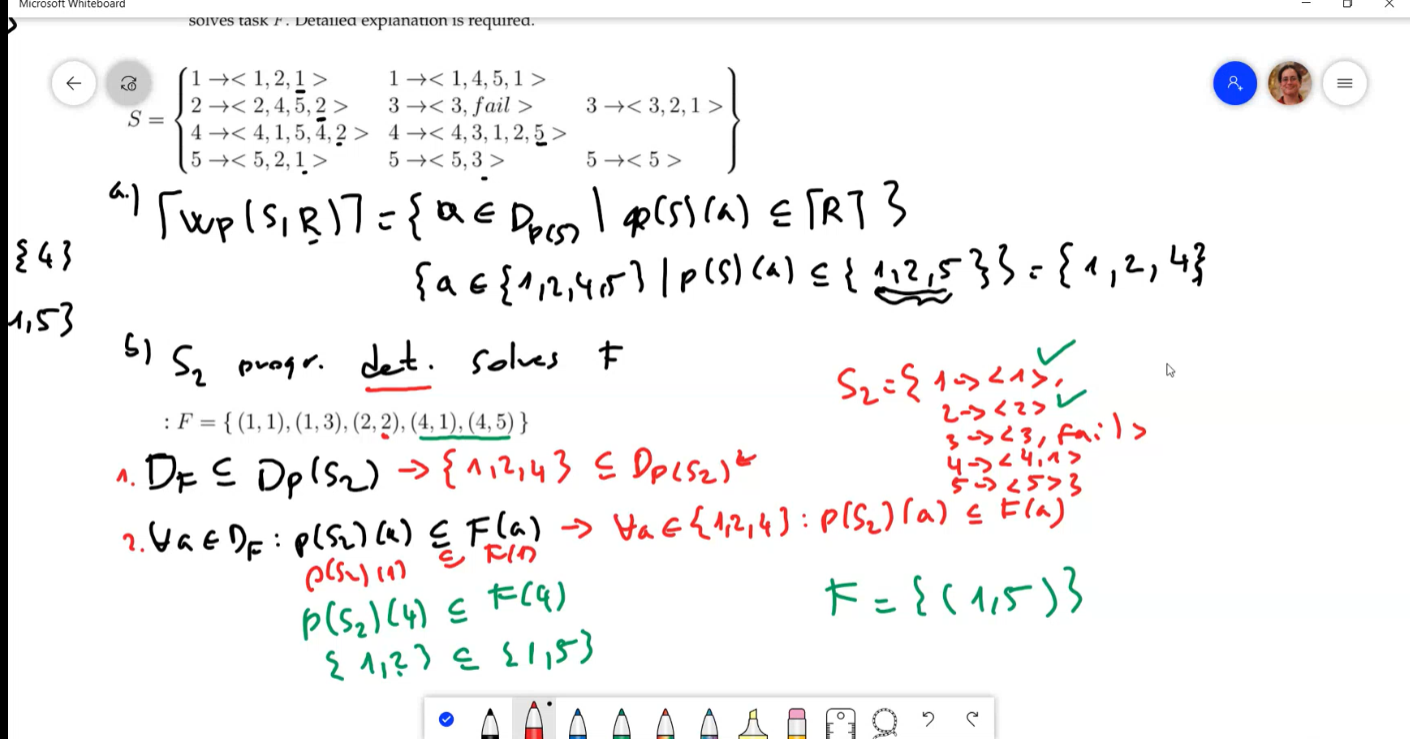 Microsoft Whiteboard
solves task F. Detailed explanation is required.
S = { 1 → < 1, 2, 1 > 1 → < 1, 4, 5, 1 >
2 → < 2, 4, 5, 2 > 3 → < 3, fail > 3 → < 3, 2, 1 >
4 → < 4, 1, 5, 4, 2 > 4 → < 4, 3, 1, 2, 5 >
5 → < 5, 2, 1 > 5 → < 5, 3 > 5 → < 5 > }
a.) ⌈wp(S,R)⌉ = { a ∈ D_p(S) | p(S)(a) ⊆ ⌈R⌉ }
{4}
{a ∈ {1,2,4,5} | p(S)(a) ⊆ { 1,2,5 }} = {1, 2, 4}
1,5}
b) S₂ progr. det. solves F
S₂ = { 1 → <1>,
2 → <2>
3 → <3, fail>
4 → <4,1>
5 → <5> }
: F = { (1, 1), (1, 3), (2, 2), (4, 1), (4, 5) }
1. D_F ⊆ D_p(S₂) → {1,2,4} ⊆ D_p(S₂)
2. ∀a ∈ D_F : p(S₂)(a) ⊆ F(a) → ∀a ∈ {1,2,4} : p(S₂)(a) ⊆ F(a)
p(S₂)(1) ⊆ F(1)
p(S₂)(4) ⊆ F(4)
F = {(1,5)}
{1,2} ⊆ {1,5}